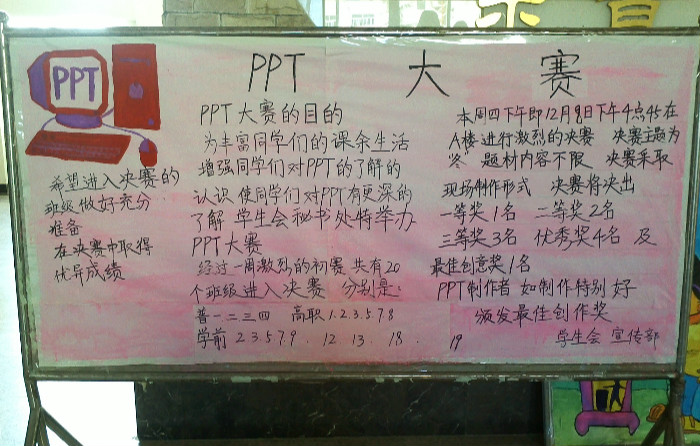 PPT 大赛
PPT
希望进入决赛的
班级做好充分
准备
在决赛中取得
优异成绩
PPT大赛的目的
为丰富同学们的课余生活
增强同学们对PPT的了解的
认识 使同学们对PPT有更深的
了解 学生会秘书处特举办
PPT大赛
经过一周激烈的初赛 共有20
个班级进入决赛 分别是:
普一二三四 高职1.2.3.5.7.8
学前 2.3.5.7.9. 12 13. 18. 19
本周四下午即12月8日下午4点45在
A楼进行激烈的决赛 决赛主题为
冬 题材内容不限 决赛采取
现场制作形式 决赛将决出
一等奖1名 二等奖2名
三等奖3名 优秀奖4名 及
最佳创意奖1名
PPT制作者 如制作特别好
颁发最佳创作奖
学生会 宣传部